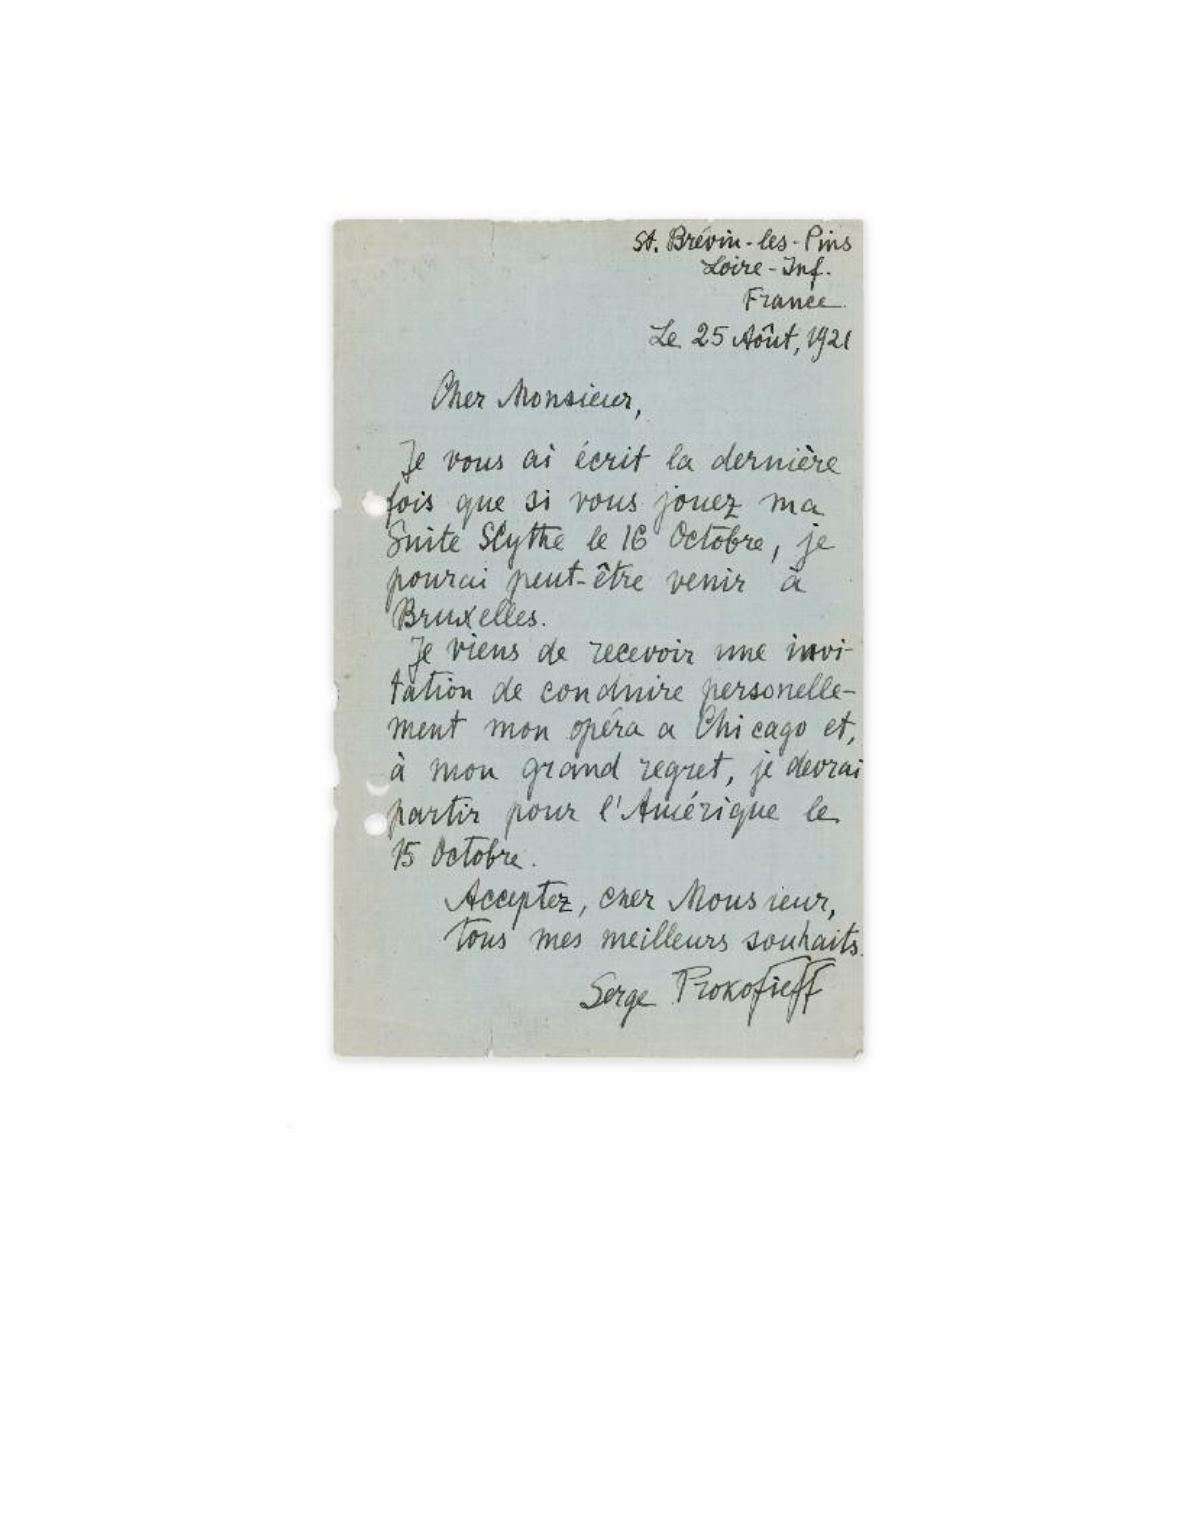 St. Brévin-les-Pins
Loire-Inf.
France
Le 25 Aôut, 1921
Cher Monsieur,
Je vous ai écrit la dernière
fois que si vous jouez ma
Suite Scythe le 16 Octobre, je
pourai peut-être venir à
Bruxelles.
Je viens de recevoir une invi-
tation de conduire personelle-
ment mon opéra a Chicago et,
à mon grand regret, je devrai
partir pour l'Amérique le
15 Octobre.
Acceptez, cher Monsieur,
tous mes meilleurs souhaits.
Serge Prokofieff